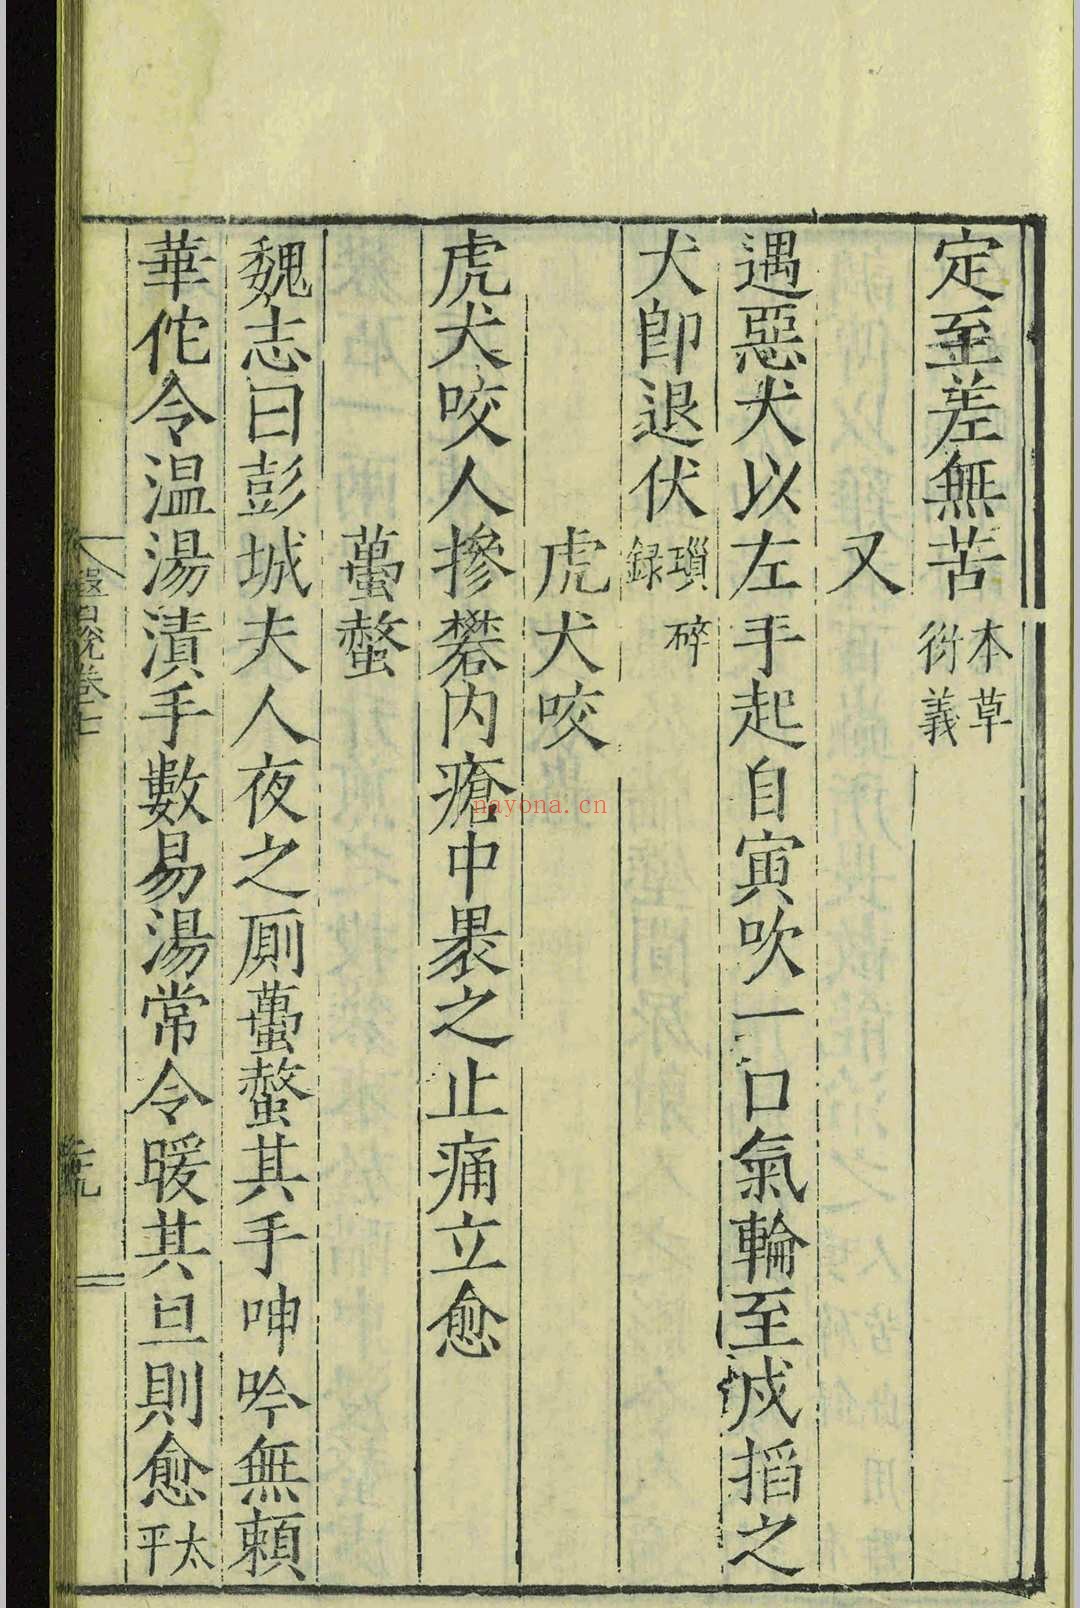 定至差無苦本草衍義
又
遇惡犬以左手起自寅吹一口氣輪至戌搯之
犬即退伏瑣碎録
虎犬咬
虎犬咬人摻礬内瘡中裹之止痛立愈
蠆螫
魏志曰彭城夫人夜之厠蠆螫其手呻吟無賴
華佗令温湯漬手數易湯常令暖其旦則愈太平
醫說卷七
二十九
nayona.cn